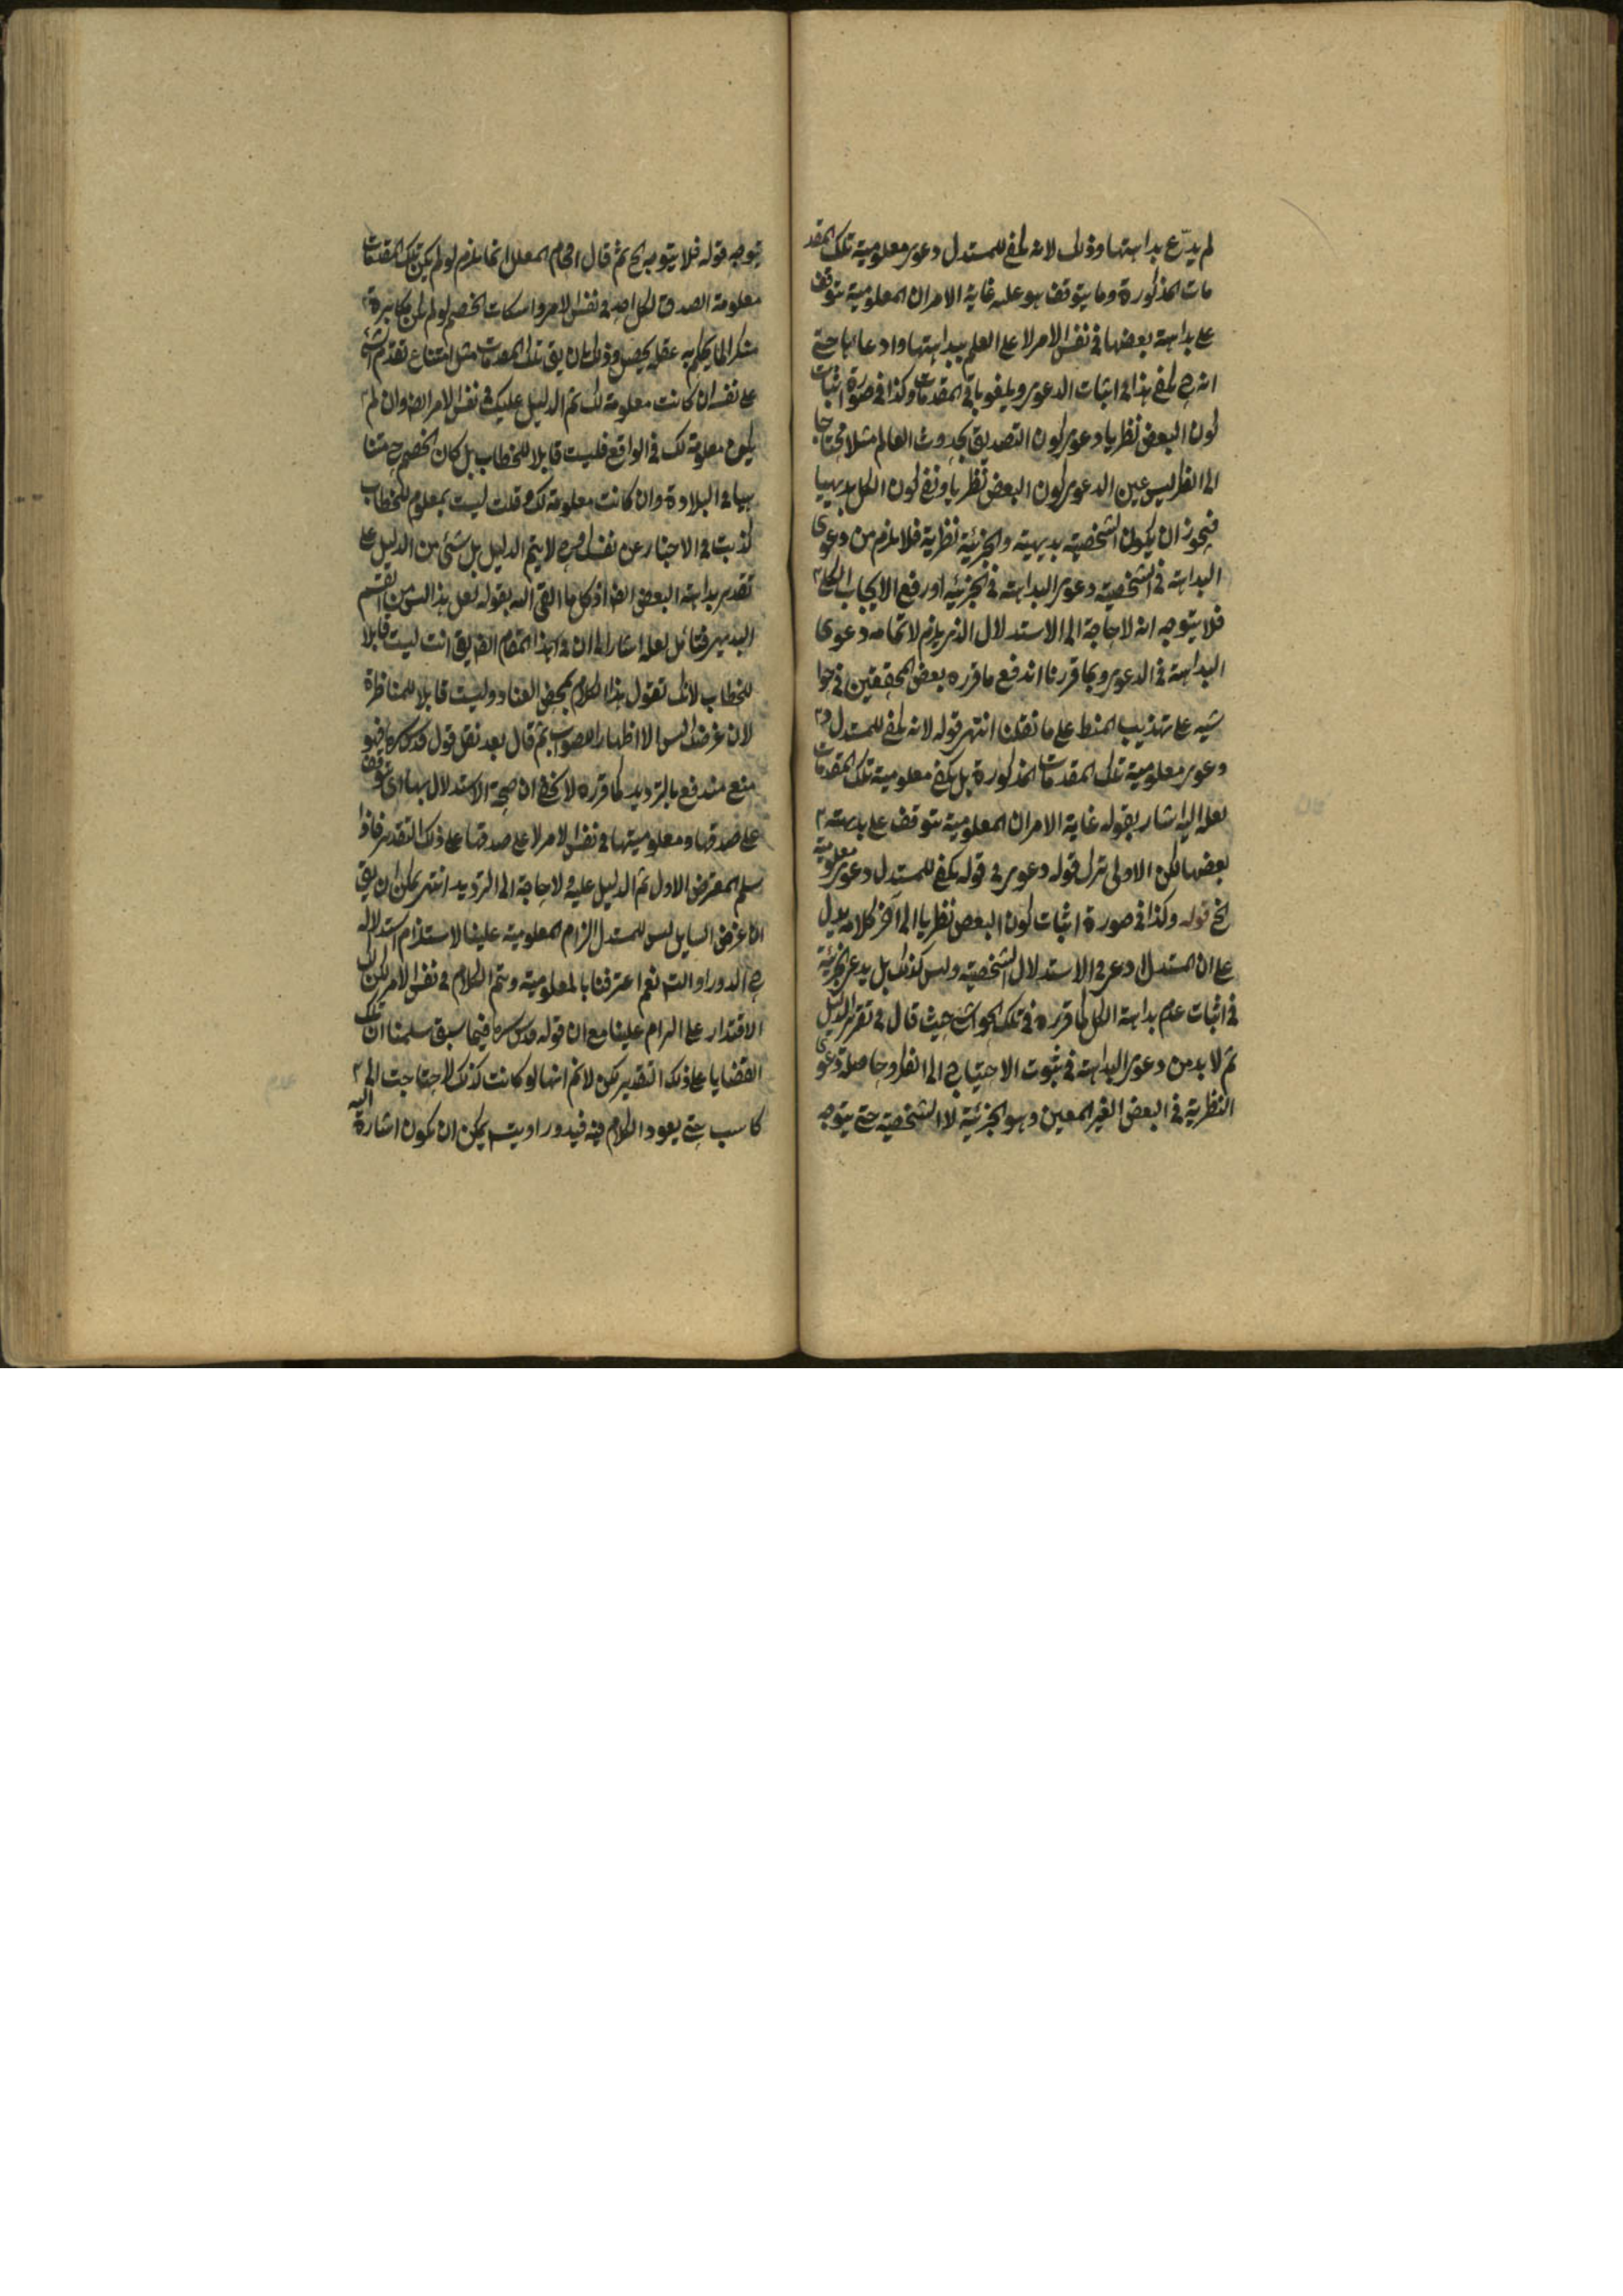 لم يدّع بداهتها وذلك لانه يكفى للمستدل دعوى معلومية تلك المقد
مات المذكورة وما يتوقف هو عليه غاية الامر ان المعلومية يتوقف
على بداهة بعضها فى نفس الامر لا على العلم ببداهتها وادعائها حتى
انه ح يكفى هذا فى اثبات الدعوى ويلغو باقى المقدمات وكذا فى صورة اثبات
كون البعض نظريا دعوى كون التصديق بحدوث العالم مثلا محتاجا
الى النظر ليس عين الدعوى كون البعض نظريا ونفى كون الكل بديهيا
فيجوز ان يكون الشخصية بديهية والجزئية نظرية فلا يلزم من دعوى
البداهة فى الشخصية دعوى البداهة فى الجزئية او رفع الايجاب الكلى
فلا يتوجه انه لا حاجة الى الاستدلال الذى يلزم لاتمامه دعوى
البداهة فى الدعوى وبما قررنا اندفع ما قرره بعض المحققين فى حوا
شيه على تهذيب المنطق على ما نقلنا انتهى قوله لانه يكفى للمستدل
دعوى معلومية تلك المقدمات المذكورة بل يكفى معلومية تلك المقدمات
لعله اليه اشار بقوله غاية الامر ان المعلومية يتوقف على بداهته
بعضها لكن الاولى ترك قوله دعوى فى قوله يكفى للمستدل دعوى معلومية
الخ قوله وكذا فى صورة اثبات كون البعض نظريا الى آخر كلامه يدل
على ان المستدل ادعى فى الاستدلال الشخصية وليس كذلك بل يدعى الجزئية
فى اثبات عدم بداهة الكل كما قرره فى تلك الحواشى حيث قال فى تقرير الدليل
ثم لا بد من دعوى البداهة فى ثبوت الاحتياج الى النظر وحاصله دعوى
النظرية فى البعض الغير المعين وهو الجزئية لا الشخصية حتى يتوجه
يتوجه قوله فلا يتوجه الخ ثم قال افحام المعلل انما يلزم لو لم يكن تلك المقدمات
معلومة الصدق لكل احد فى نفس الامر واسكات الخصم لو لم يكن مكابرة
منكرا لما يحكم به عقله وذلك بان يق تلك المقدمات مثل امتناع تقدم الشئ
على نفسه ان كانت معلومة لك تم الدليل عليك فى نفس الامر ايضا وان لم
يكن معلومة لك فى الواقع فليست قابلا للخطاب بل كان الخصم ح متنا
هيا فى البلادة وان كانت معلومة لك وقلت ليست بمعلوم للخطاب
كذبت فى الاخبار عن نفسك وح لا يتم الدليل بل شئ من الدليل على
تقدير بداهة البعض ايضا اذ كل ما القى اليه بقوله لعل هذا ليس من القسم
البديهى فتأمل لعله اشار الى ان فى هذا المقام ايضا يق انت ليست قابلا
للخطاب لانك تقول هذا الكلام بمحض العناد وليست قابلا للمناظرة
لان غرضك ليس الا اظهارا للصواب ثم قال بعد نقل قول قدس سره فهو
منع مندفع بالترديد كما قرره لا يخفى ان صحة الاستدلال بها اى توقف
على صدقها ومعلوميتها فى نفس الامر لا على صدقها على ذلك التقدير فاذا
سلم المعترض الاول تم الدليل عليه ولا حاجة الى الترديد انتهى يمكن ان يق
ان غرض السايل ليس للمستدل الزام المعلومية علينا لاستلزام استدلاله
ح الدور او الت نعم اعترفنا بالمعلومية ويتم الكلام فى نفس الامر لكن لك
الاقتدار على الزام علينا مع ان قوله قدس سره فيما سبق سلمنا ان تلك
القضايا على ذلك التقدير لكن لا نم انها لو كانت كذلك لاحتاجت الى
كاسب حتى يعود الكلام فيه فيدور او يتسم يمكن ان يكون اشارة اليه